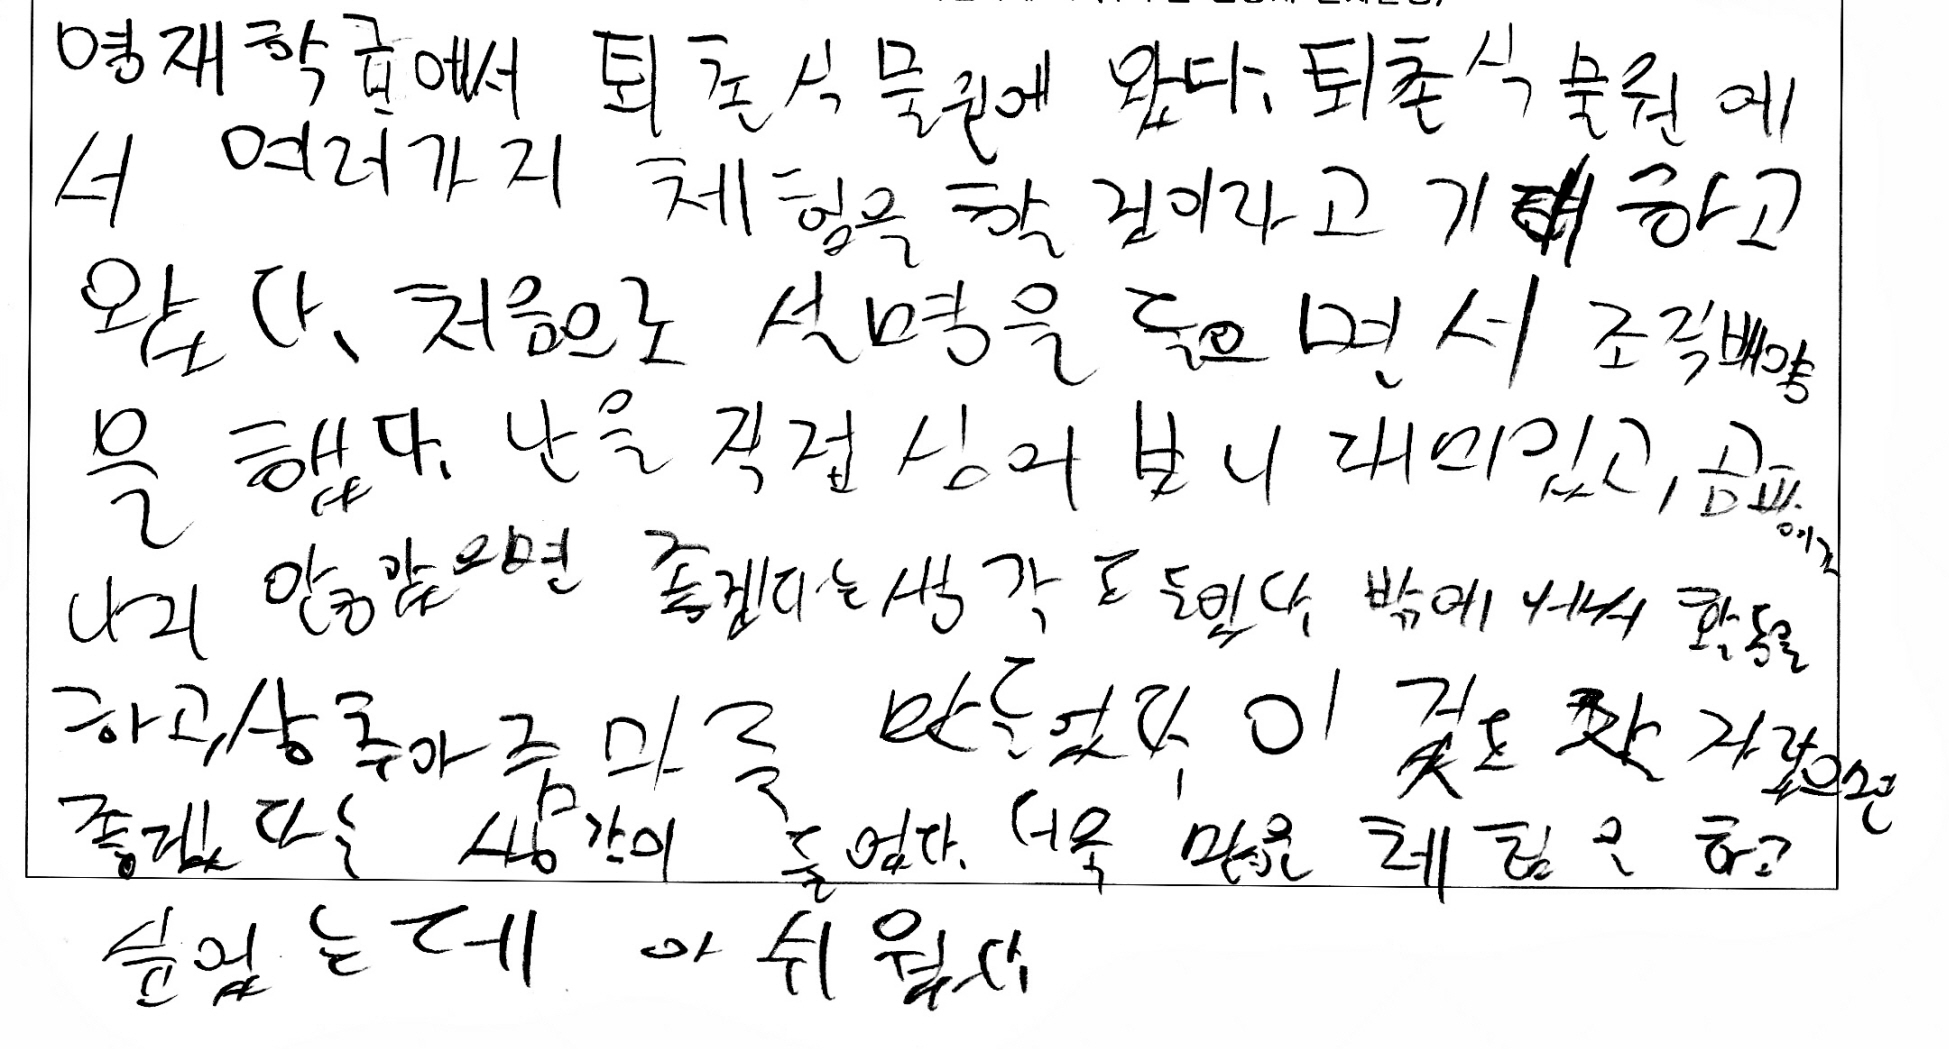 영재학급에서 퇴촌식물원에 왔다. 퇴촌식물원에
서 여러가지 체험을 할 것이라고 기대하고
왔다. 처음으로 설명을 들으면서 조직배양
을 했다. 난을 직접 심어 보니 재미있고, 곰팡이가
나지 안았으면 좋겠다는 생각도 들었다. 밖에 서서 활동을
하고, 상추아주마를 만들었다. 이 것도 잘 자랐으면
좋겠다는 생각이 들었다. 더욱 많은 체험을 하고
싶었는데 아쉬웠다